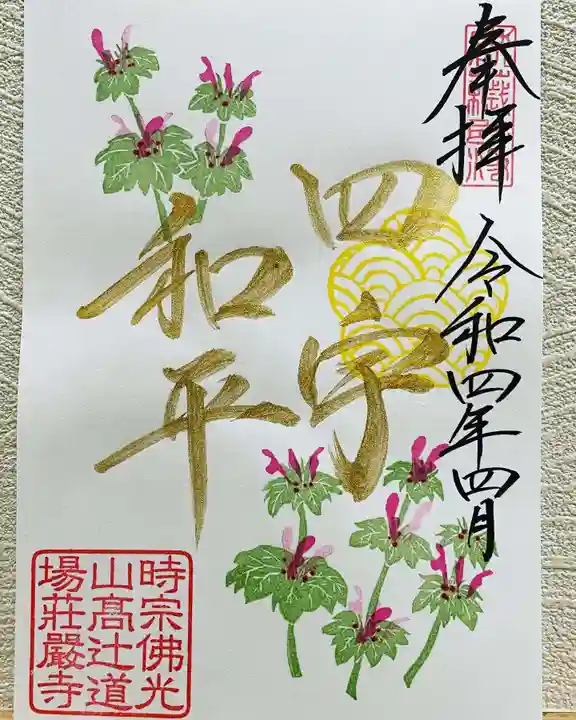 奉拝
令和四年四月
四宇
和平
時宗佛光
山髙辻道
場莊嚴寺